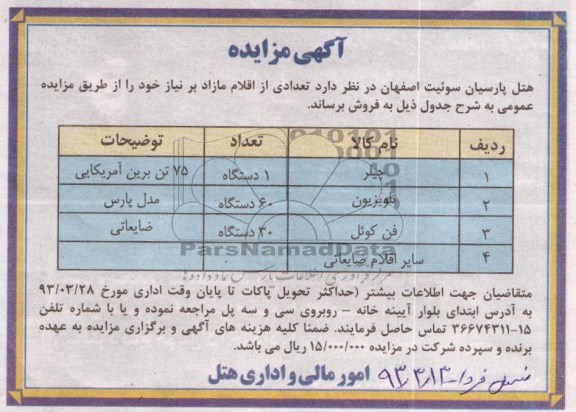 آگهی مزایده
هتل پارسیان سوئیت اصفهان در نظر دارد تعدادی از اقلام مازاد بر نیاز خود را از طریق مزایده
عمومی به شرح جدول ذیل به فروش برساند.
ردیف نام کالا تعداد توضیحات
۱ چیلر ۱ دستگاه ۷۵ تن برین آمریکایی
۲ تلویزیون ۶۰ دستگاه مدل پارس
۳ فن کوئل ۳۰ دستگاه ضایعاتی
۴ سایر اقلام ضایعاتی
ParsNamadData
متقاضیان جهت اطلاعات بیشتر (حداکثر تحویل پاکات تا پایان وقت اداری مورخ ۹۳/۰۳/۲۸
به آدرس ابتدای بلوار آیینه خانه – روبروی سی و سه پل مراجعه نموده و یا با شماره تلفن
۳۶۶۷۴۳۱۱-۱۵ تماس حاصل فرمایند. ضمنا کلیه هزینه های آگهی و برگزاری مزایده به عهده
برنده و سپرده شرکت در مزایده ۱۵/۰۰۰/۰۰۰ ریال می باشد.
امور مالی و اداری هتل
نسل فردا ۹۳,۳,۱۳